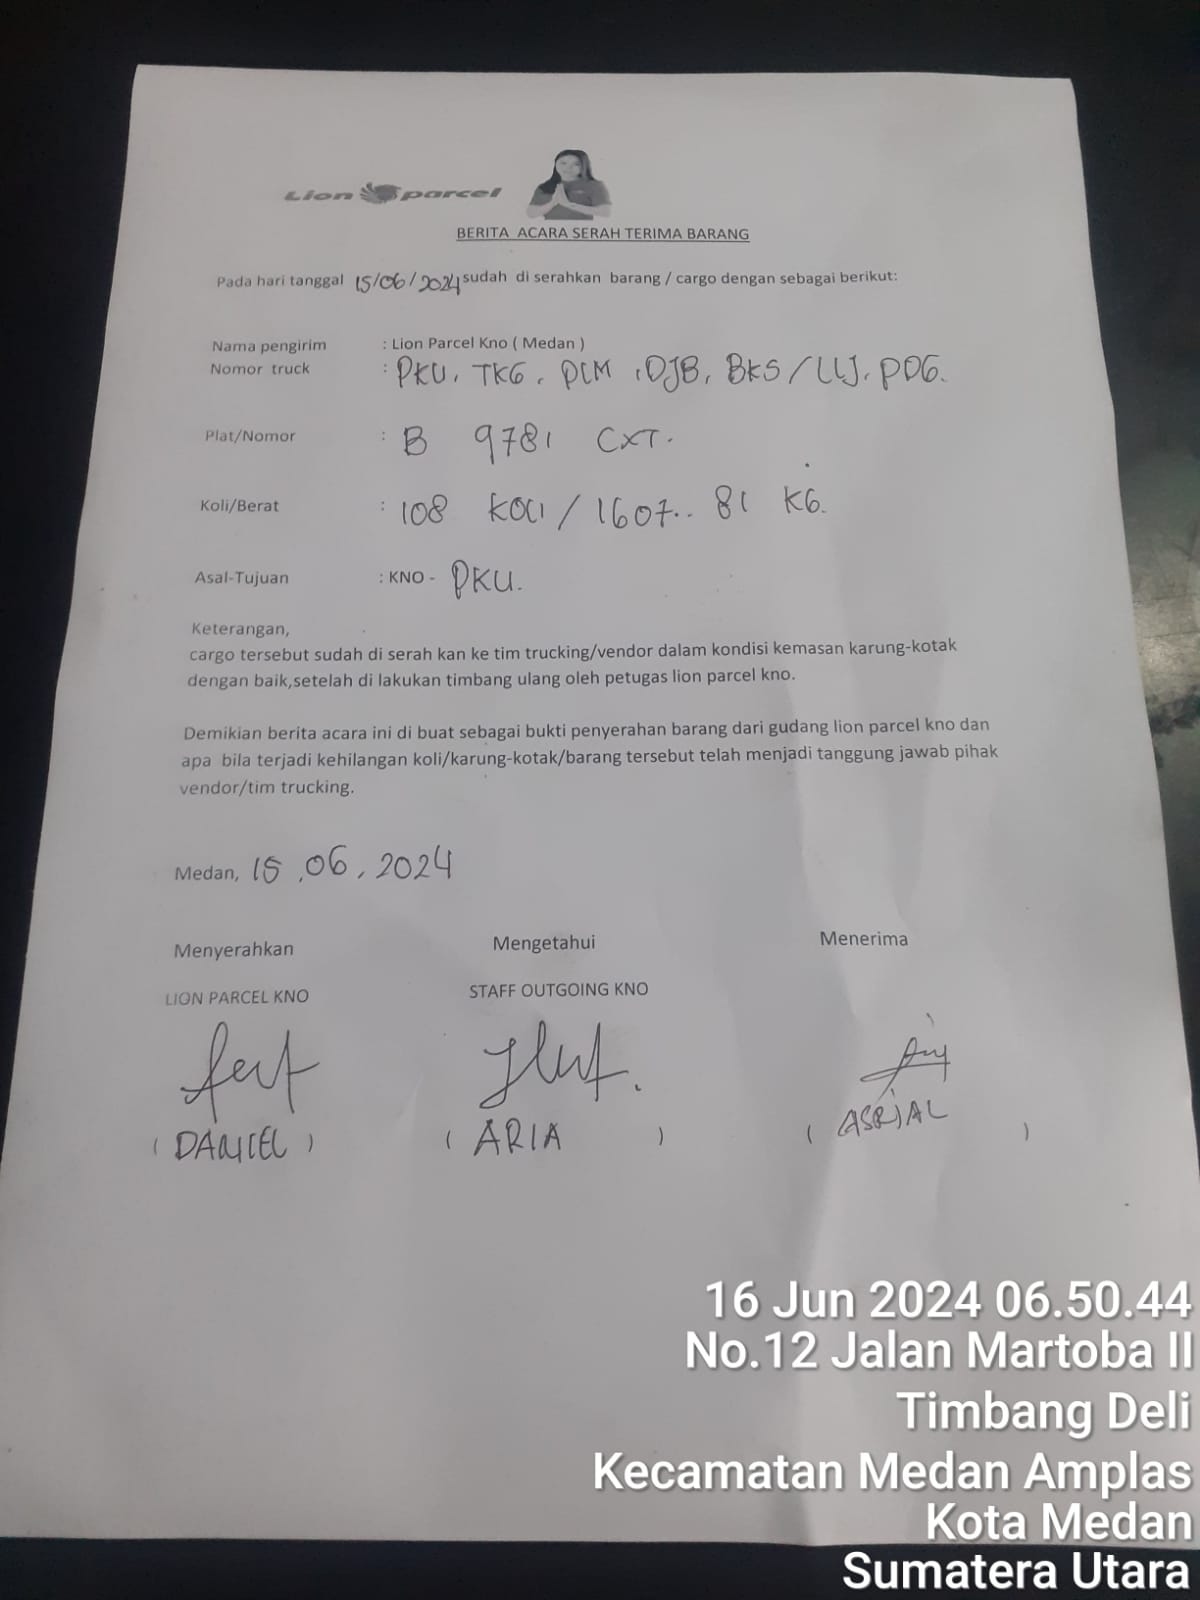 Lion parcel
BERITA ACARA SERAH TERIMA BARANG
Pada hari tanggal 15/06/2024 sudah di serahkan barang / cargo dengan sebagai berikut:
Nama pengirim : Lion Parcel Kno ( Medan )
Nomor truck : PKU, TKG, PLM, DJB, BKS/LLJ, PDG.
Plat/Nomor : B 9781 CXT.
Koli/Berat : 108 KOLI / 1607.. 81 KG.
Asal-Tujuan : KNO - PKU.
Keterangan,
cargo tersebut sudah di serah kan ke tim trucking/vendor dalam kondisi kemasan karung-kotak
dengan baik,setelah di lakukan timbang ulang oleh petugas lion parcel kno.
Demikian berita acara ini di buat sebagai bukti penyerahan barang dari gudang lion parcel kno dan
apa bila terjadi kehilangan koli/karung-kotak/barang tersebut telah menjadi tanggung jawab pihak
vendor/tim trucking.
Medan, 15, 06, 2024
Menyerahkan Mengetahui Menerima
LION PARCEL KNO STAFF OUTGOING KNO
( DANIEL ) ( ARIA ) ( ASRIAL )
16 Jun 2024 06.50.44
No.12 Jalan Martoba II
Timbang Deli
Kecamatan Medan Amplas
Kota Medan
Sumatera Utara